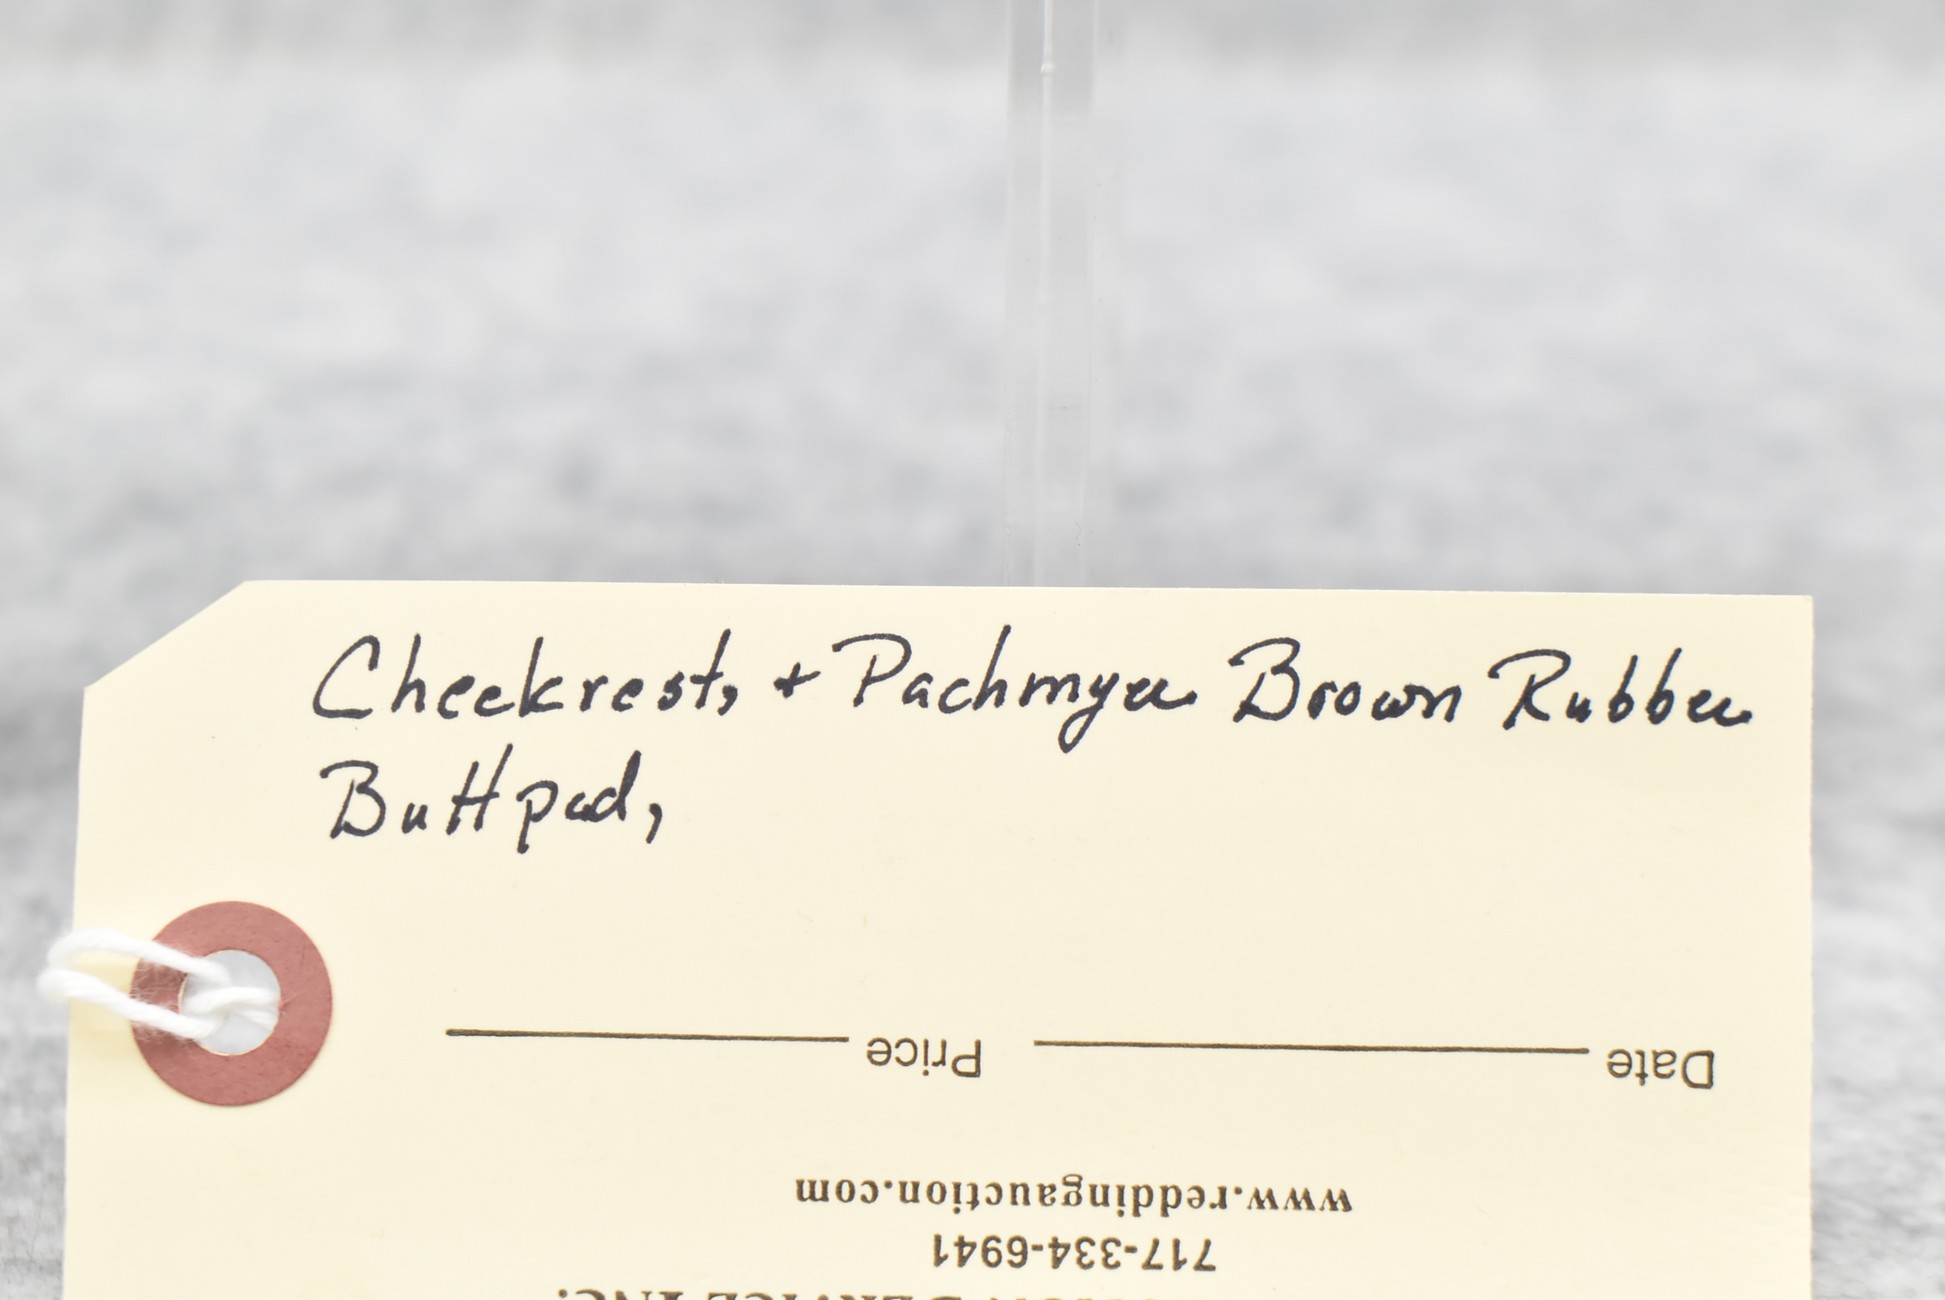 Cheekrest, + Pachmyer Brown Rubber
Buttpad,
Price Date
www.reddingauction.com
717-334-6941
INC.